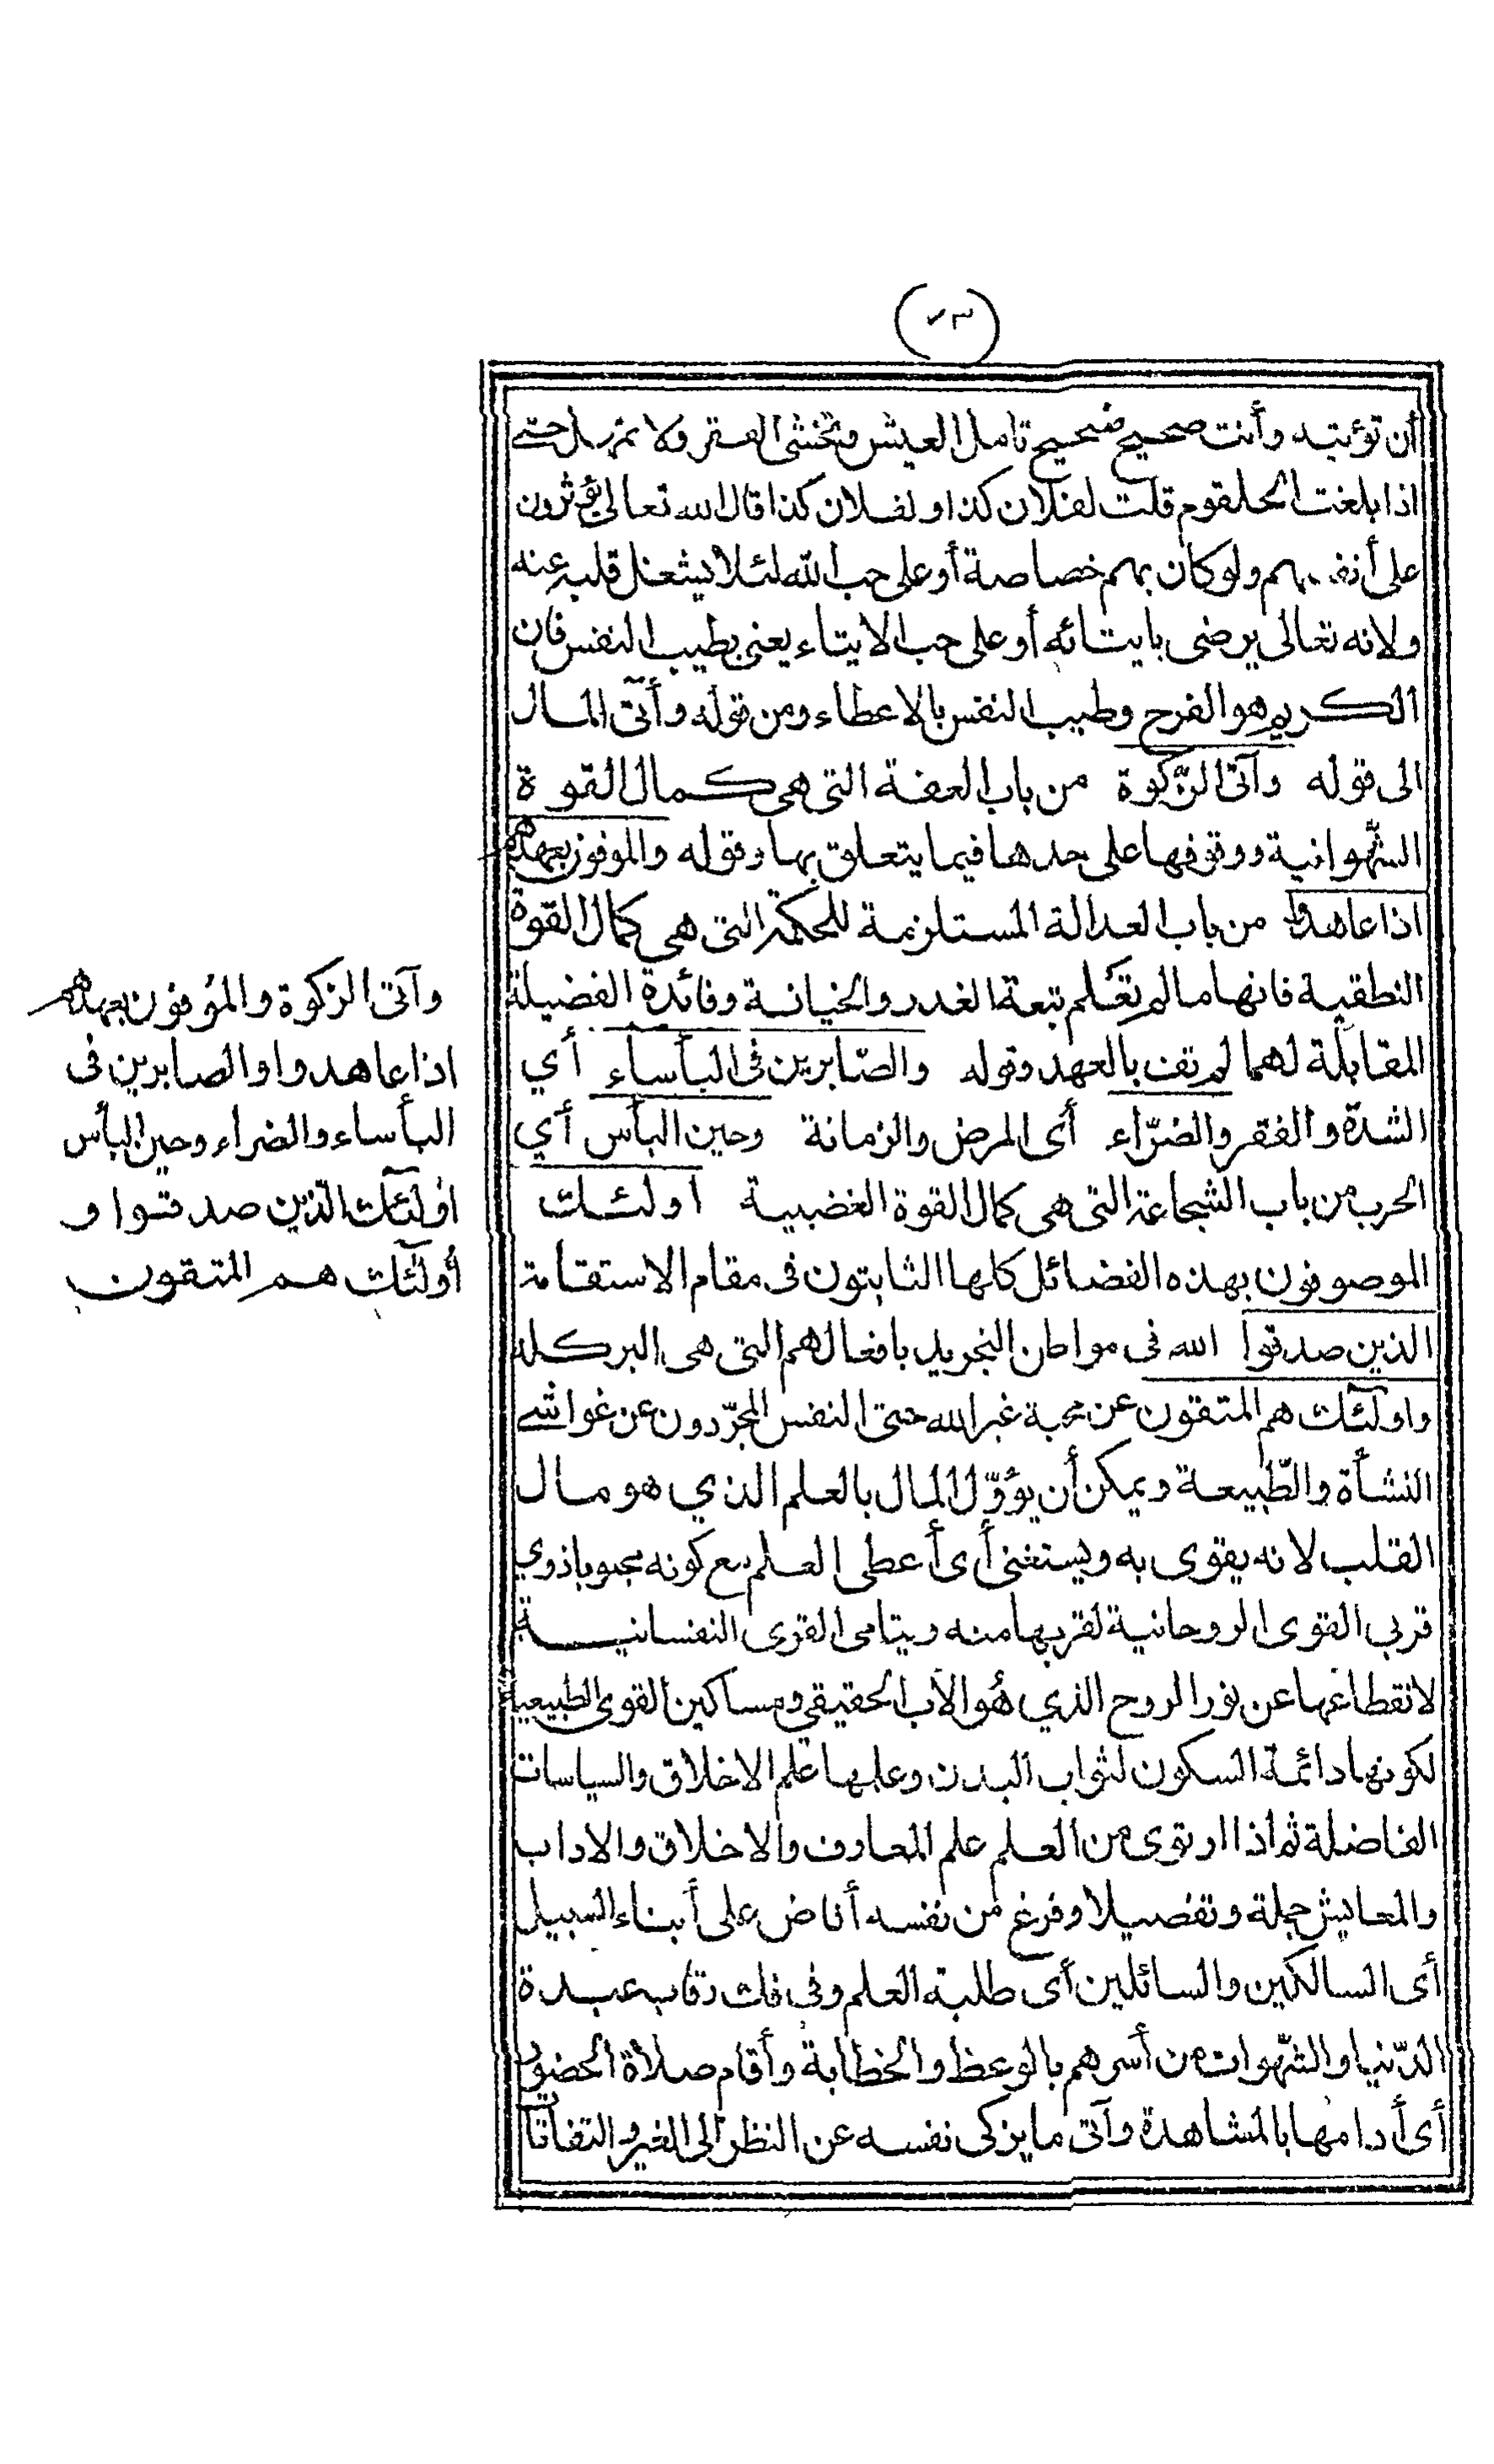 (٧٣)
أن تؤتيه وأنت صحيح شحيح تأمل العيش وتخشى الفقر ولا تمهل حتى
اذا بلغت الحلقوم قلت لفلان كذا ولفلان كذا قال الله تعالى يؤثرون
على أنفسهم ولو كان بهم خصاصة أو على حب الله لئلا يشغل قلبه عنه
ولانه تعالى يرضى بايتائه أو على حب الايتاء يعني بطيب النفس فان
الكريم هو الفرح وطيب النفس بالاعطاء ومن قوله وأتى المال
الى قوله وآتى الزّكوة من باب العفة التى هى كمال القوة
الشّهوانية ووقوفها على حدها فيما يتعلق بها وقوله والموفون بعهدهم
اذا عاهدوا من باب العدالة المستلزمة للحكمة التى هى كمال القوة
النطقية فانها ما لم تعلم تبعة الغدر والخيانة وفائدة الفضيلة
المقابلة لهما لم تف بالعهد وقوله والصّابرين فى البأساء أي
الشدّة والفقر والضرّاء أى المرض والزمانة وحين البأس أي
الحرب من باب الشجاعة التى هى كمال القوة الغضبية اولئك
الموصوفون بهذه الفضائل كلها الثابتون فى مقام الاستقامة
الذين صدقوا الله فى مواطن التجريد بافعالهم التى هى البر كله
واولئك هم المتقون عن محبة غير الله حتى النفس المجرّدون عن غواشى
النشأة والطّبيعة ويمكن أن يؤوّل المال بالعلم الذي هو مال
القلب لانه يقوى به ويستغنى أى أعطى العلم مع كونه محبوبا ذوي
قربى القوى الروحانية لقربها منه ويتامى القوى النفسانية
لانقطاعها عن نور الروح الذي هو الأب الحقيقي ومساكين القوى الطبيعية
لكونها دائمة السكون لثواب البدن وعلمها علم الاخلاق والسياسات
الفاضلة ثم اذا ارتوى من العلم علم المعارف والاخلاق والاداب
والمعايش جملة وتفصيلا وفرغ من نفسه أفاض على أبناء السبيل
أى السالكين والسائلين أى طلبة العلم وفى فك رقاب عبدة
الدّنيا والشّهوات من أسرهم بالوعظ والخطابة وأقام صلاة الحضور
أى أدامها بالمشاهدة وآتى ما يزكى نفسه عن النظر الى الغير والتفاتا
وآتى الزكوة والمؤفون بعهدهم
اذا عاهدوا والصابرين فى
البأساء والضراء وحين البأس
اولئك الّذين صدقوا و
أولئك هم المتقون